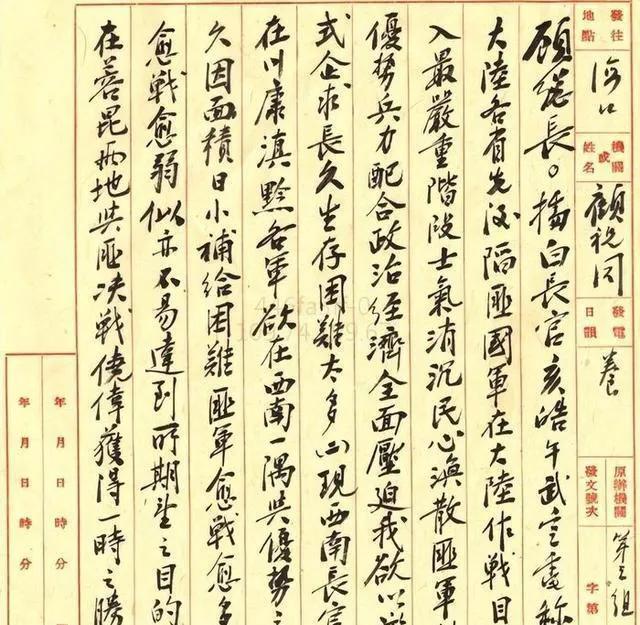 發往地點
海口
機關或姓名
顧祝同
發電日韻
養
原辦機關發文號次
第三組
字第
顧總長。據白長官亥皓午武空電稱
大陸各省先後陷匪國軍在大陸作戰目
入最嚴重階段士氣消沉民心渙散匪軍
優勢兵力配合政治經濟全面壓迫我欲以
式企求長久生存困難太多(二)現西南長官
在川康滇黔各軍欲在西南一隅與優勢之
久因面積日小補給困難匪軍愈戰愈多
愈戰愈弱似亦不易達到所期望之目的
在蓉昆兩地與匪決戰僥倖獲得一時之勝
年月日時分
年月日時分